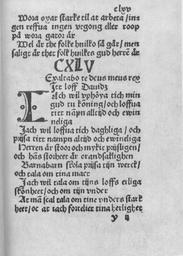 clxv
Wora oxar starke til at arbeta/ in=
gen reffua ingen vtgong eller roop
på wora gator är
Wel är the folke huilko så går/ men
salige är thet folk huilkes gud herrē är
CXLV
Exaltabo te deus meus rex
Itt loff Dauids
Iach wil vphöya tich min
gud tu konūg/ och loffua
titt nāpn altijd och ewin
neliga
Iach wil loffua tich daghliga/ och
prijsa titt nāpn altijd och ewinneliga
Herren är stoor och mykit prijsligen/
och hās storheet är orandsaklighen
Barnabarn skola prijsa tijn werck/
och tala om tina mact
Iach wil tala om tijns loffs eiliga
skönheet/ och om tijn vnder
At mā scal tala om tine vnders starck
heet/ oc at iach förtelier tina herligheet
y ij